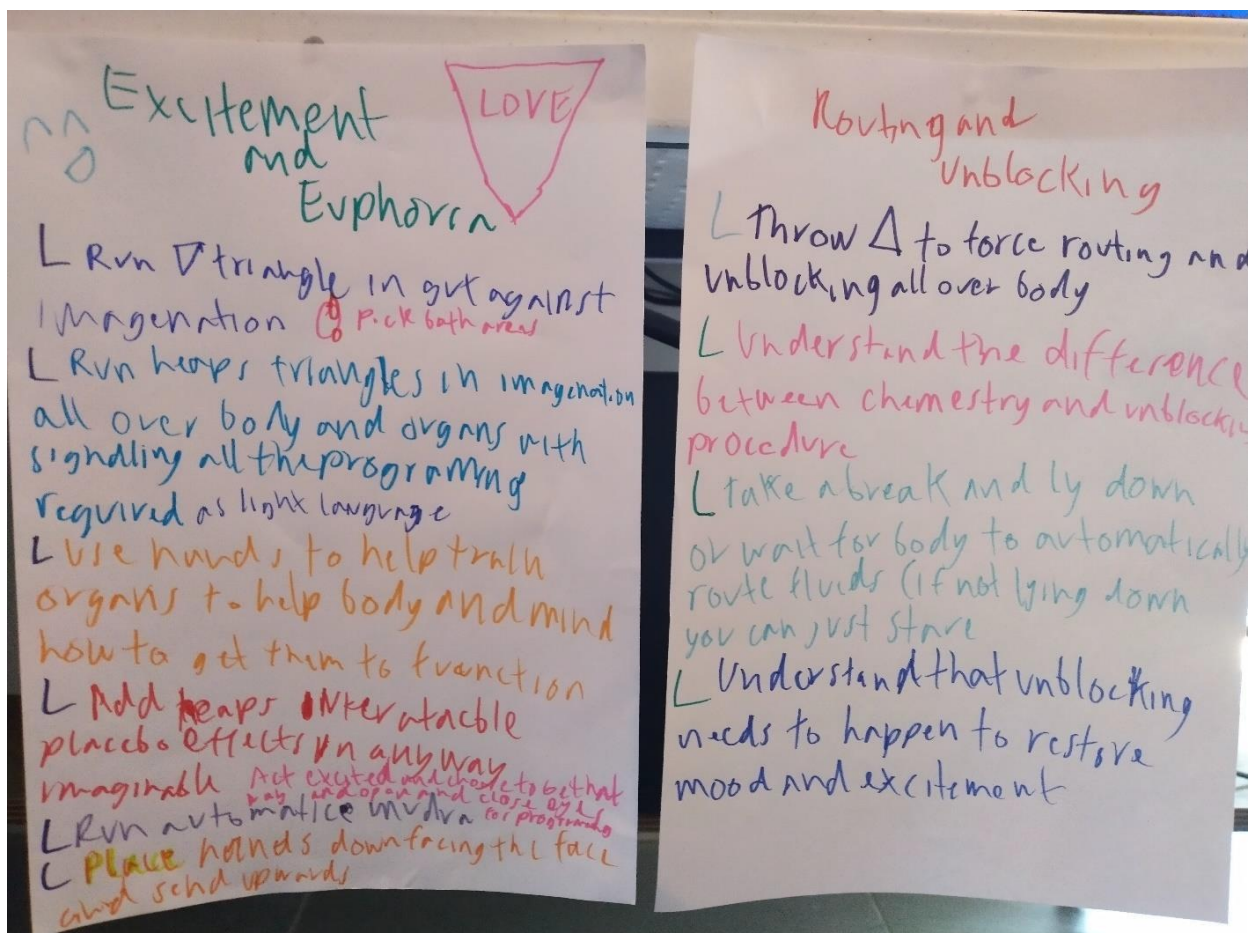 Excitement
and
Euphoria
LOVE
L Run ▽ triangle in gut against
imagenation Pick both areas
L Run heaps triangles in imagenation
all over body and organs with
signalling all the programing
required as light language
L use hands to help train
organs to help body and mind
how to get them to function
L Add heaps
placebo effects in anyway
imaginable Act excited and choose to be that
way and open and close eyes
L Run automatice mudra for programing
L Place hands down facing the face
and send upwards
Routing and
unblocking
L Throw △ to force routing and
unblocking all over body
L Understand the difference
between chemestry and unblocking
procedure
L take a break and ly down
or wait for body to automatically
route fluids (if not lying down
you can just stare
L Understand that unblocking
needs to happen to restore
mood and excitement